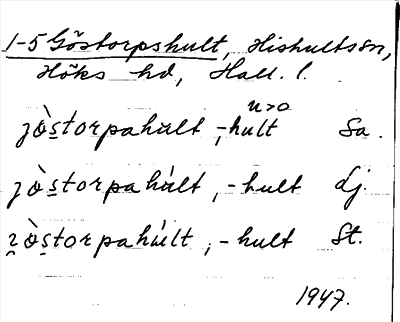 1-5 Göstorpshult, Hishultssn,
Höks hd, Hall. l.
u>o
jòstorpahult, -hult Sa.
jòstorpahúlt, -hult Lj.
jòstorpahúlt, -hult St.
1947.